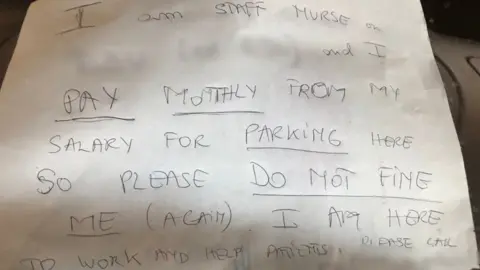 I am STAFF NURSE on
and I
PAY MONTHLY FROM MY
SALARY FOR PARKING HERE
SO PLEASE DO NOT FINE
ME (AGAIN) I AM HERE
TO WORK AND HELP PATIENTS. PLEASE CALL